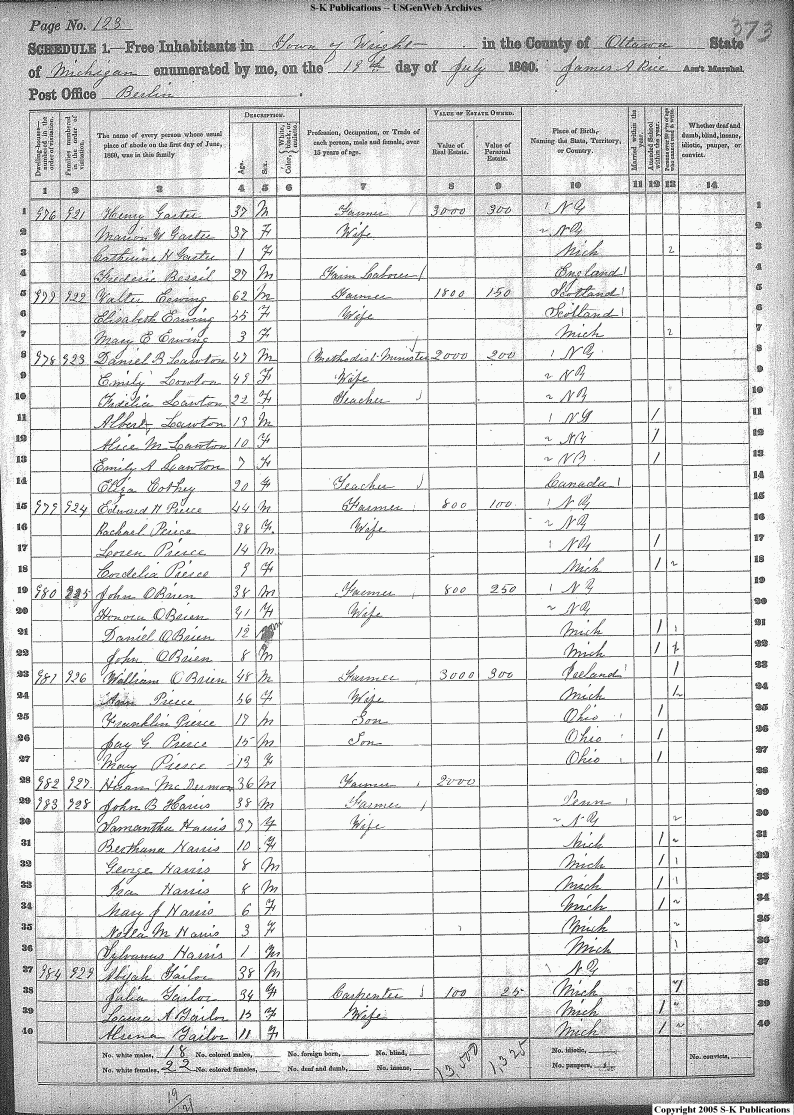 S-K Publications -- USGenWeb Archives
Page No. 123
373
SCHEDULE 1.—Free Inhabitants in Town of Wright in the County of Ottawa State
of Michigan enumerated by me, on the 18th day of July 1860. James A Rice Ass't Marshal.
Post Office Berlin
Dwelling-houses— numbered in the order of visitation.
Families numbered in the order of visitation.
The name of every person whose usual place of abode on the first day of June, 1860, was in this family
DESCRIPTION.
Age.
Sex.
Color, White, black, or mulatto.
Profession, Occupation, or Trade of each person, male and female, over 15 years of age.
VALUE OF ESTATE OWNED.
Value of Real Estate.
Value of Personal Estate.
Place of Birth, Naming the State, Territory, or Country.
Married within the year.
Attended School within the year.
Whether deaf and dumb, blind, insane, idiotic, pauper, or convict.
1 2 3 4 5 6 7 8 9 10 11 12 13 14
1 976 921 Henry Garter 37 M Farmer 3000 300 1 N Y 1
2 Marion W Garter 37 F Wife N Y 2
3 Catherine H Garter 1 F Mich 2 3
4 Frederic Bessil 27 M Farm Laborer / England 1 4
5 977 922 Walter Erwing 62 M Farmer 1800 150 Scotland 1 5
6 Elisabeth Erwing 55 F Wife Scotland 1 6
7 Mary E Erwing 3 F Mich 2 7
8 978 923 Daniel B Lawton 47 M Methodist Minister 2000 200 1 N Y 8
9 Emily Lowton 49 F Wife N Y 9
10 Fidelia Lawton 22 F Teacher N Y 10
11 Albert Lawton 13 M 1 N Y 1 11
12 Alice M Lawton 10 F N Y 1 12
13 Emily A Lawton 7 F N Y 1 13
14 Eliza 20 F Teacher Canada 1 14
15 979 924 Edward N Pierce 44 M Farmer 800 100 1 N Y 15
16 Rachael Pierce 38 F. Wife N Y 16
17 Loren Pierce 14 M 1 N Y 1 17
18 Cordelia Pierce 9 F Mich 1 18
19 980 925 John OBrien 38 M Farmer 800 250 1 N Y 19
20 Honora OBrien 41 F Wife N Y 20
21 Daniel OBrien 12 M Mich 1 1 21
22 John OBrien 8 M Mich 1 1 22
23 981 926 William OBrien 48 M Farmer 3000 300 Ireland 1 23
24 Ann Pierce 56 F Wife Mich 24
25 Franklin Pierce 17 M Son Ohio 1 25
26 Jay G Pierce 15 M Son Ohio 1 26
27 Mary Pierce 13 F Ohio 1 27
28 982 927 Hiram McDermon 36 M Farmer 2000 28
29 983 928 John B Harris 38 M Farmer Penn 29
30 Samantha Harris 37 F Wife N Y 30
31 Berthana Harris 10 F Mich 1 31
32 George Harris 8 M Mich 1 1 32
33 Asa Harris 8 M Mich 1 1 33
34 Mary J Harris 6 F Mich 1 34
35 Nolla M Harris 3 F Mich 35
36 Sylvanus Harris 1 M Mich 1 36
37 984 929 Abijah Tailor 38 M 1 N Y 37
38 Julia Tailor 34 F Carpenter 100 25 Mich 38
39 Laura A Tailor 15 F Wife Mich 1 39
40 Alsena Tailor 11 F Mich 1 40
No. white males, 18 No. colored males, No. foreign born, No. blind, 13,500 1,325 No. idiotic, No. convicts,
No. white females, 22 No. colored females, No. deaf and dumb, No. insane, No. paupers,
19/2
Copyright 2005 S-K Publications